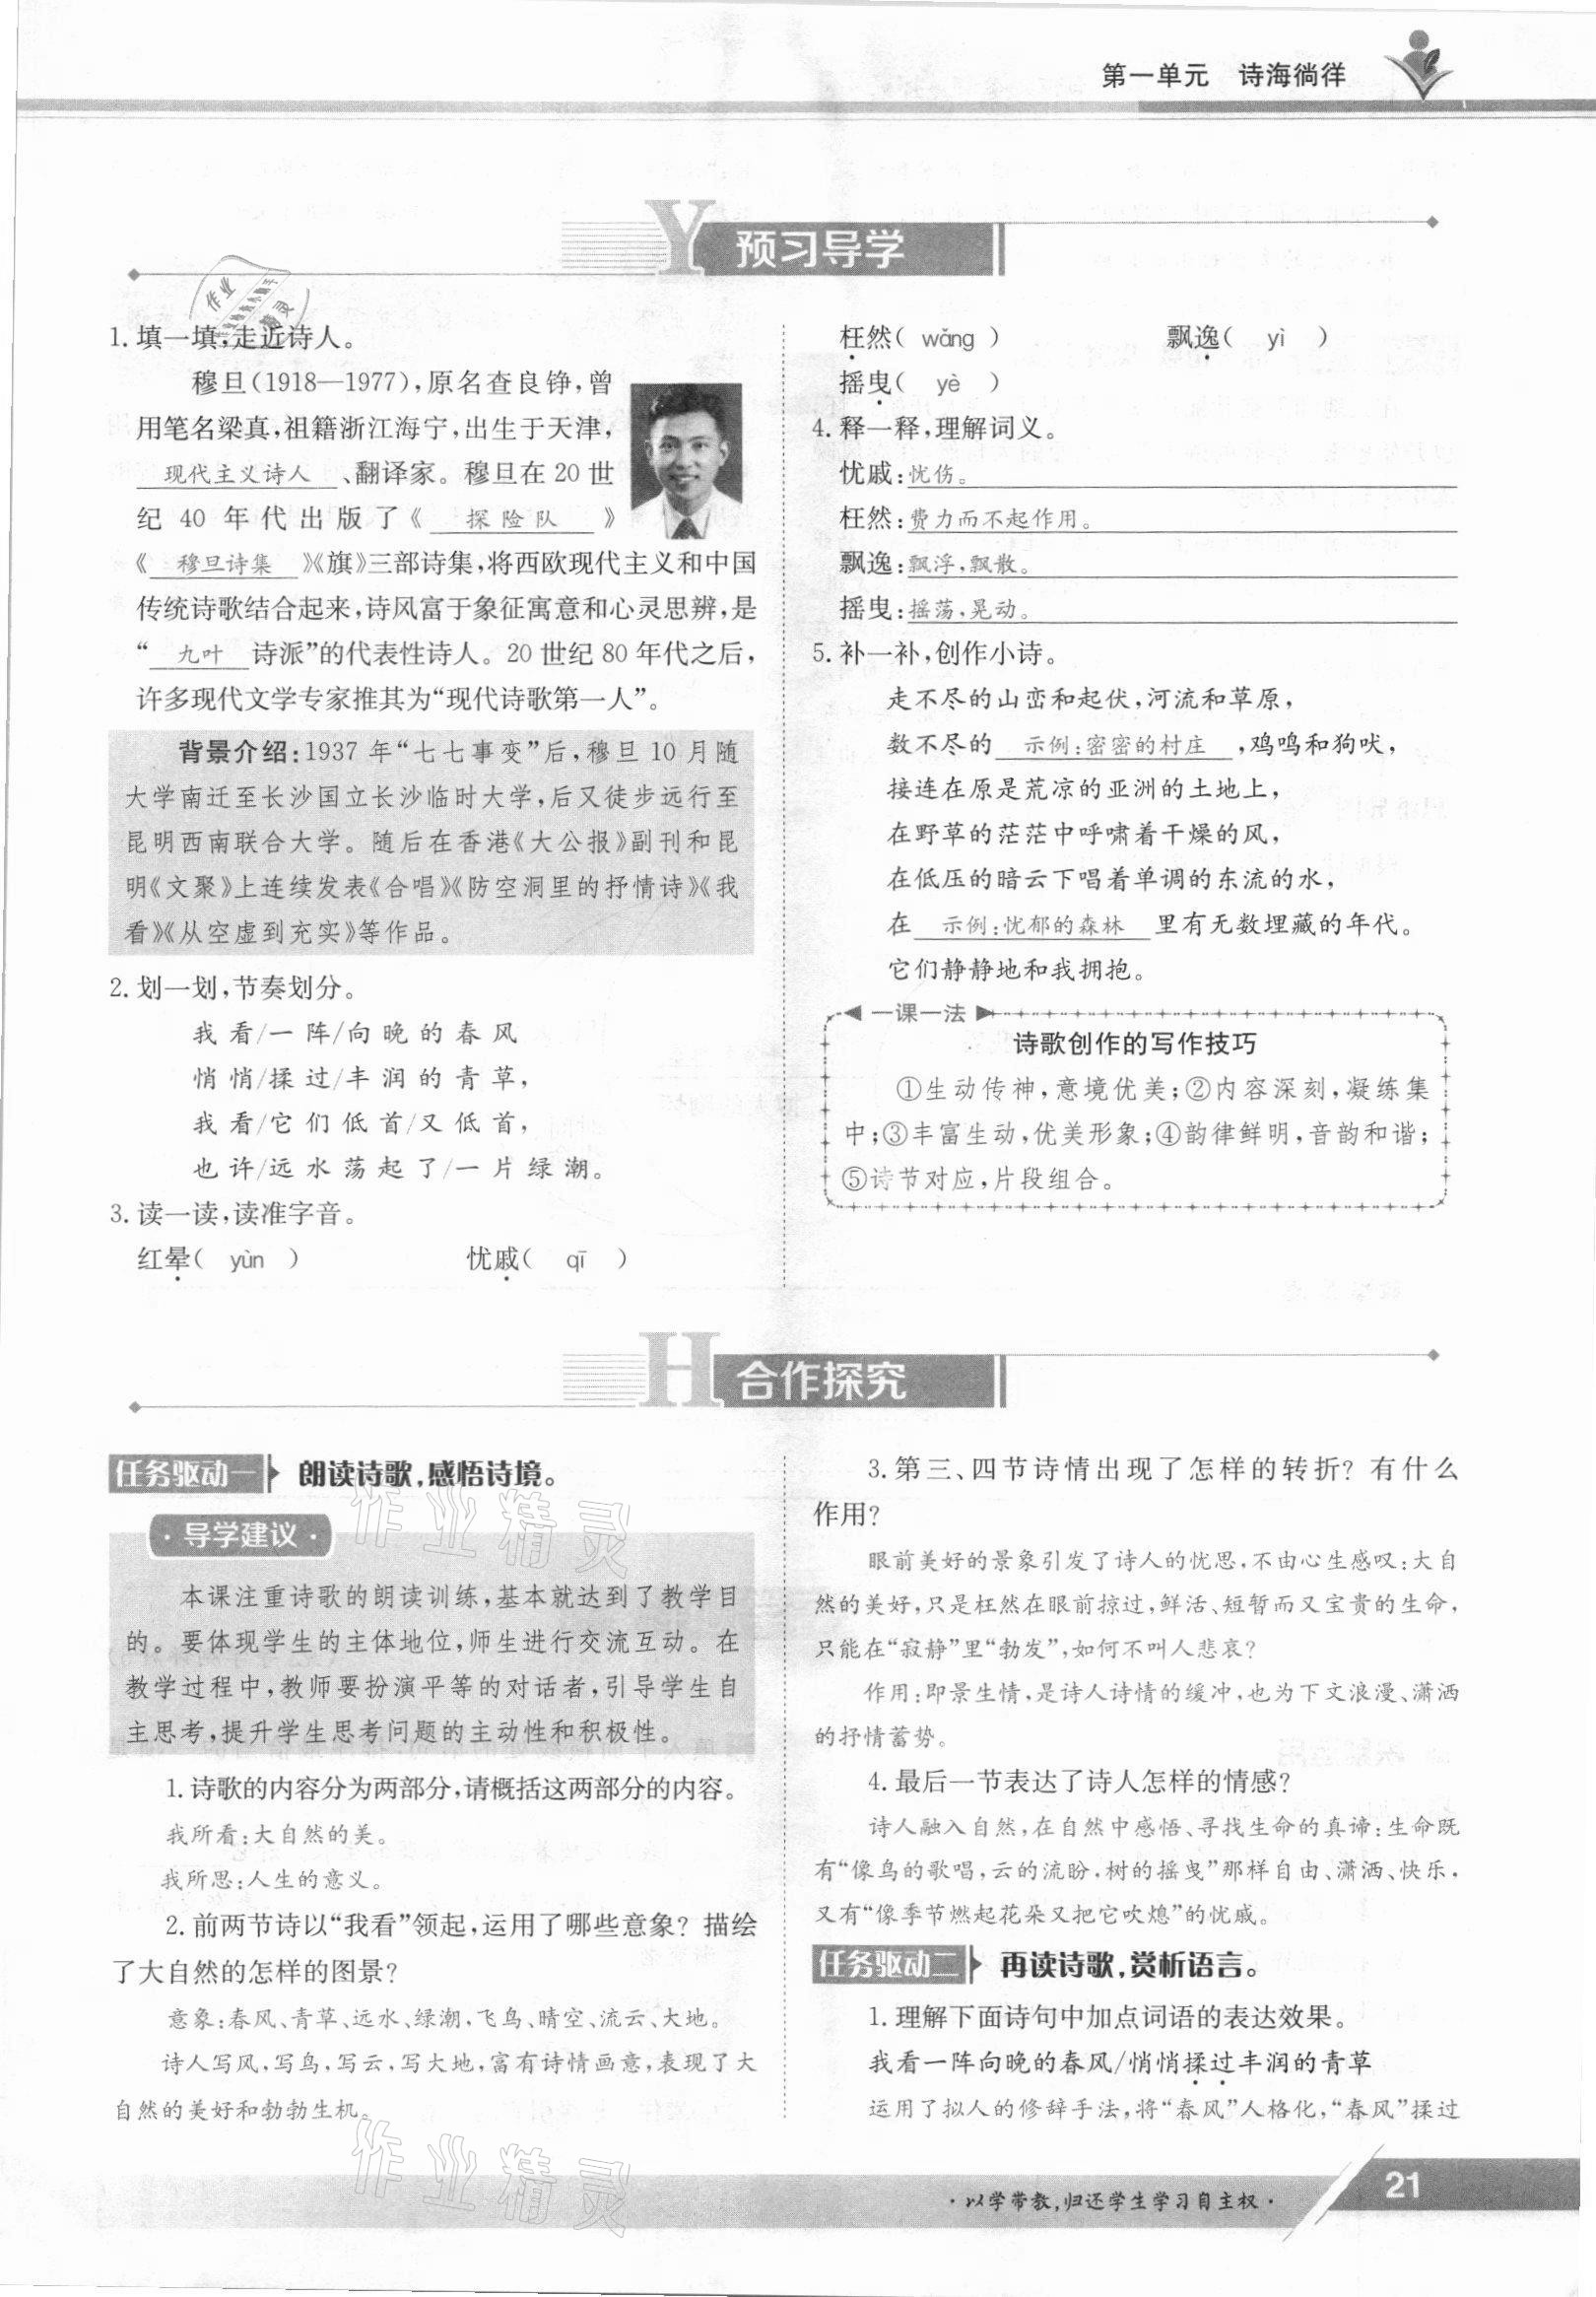 第一单元 诗海徜徉
Y 预习导学
1. 填一填,走近诗人。
穆旦(1918—1977),原名查良铮,曾
用笔名梁真,祖籍浙江海宁,出生于天津,
现代主义诗人、翻译家。穆旦在20世
纪40年代出版了《探险队》
《穆旦诗集》《旗》三部诗集,将西欧现代主义和中国
传统诗歌结合起来,诗风富于象征寓意和心灵思辨,是
“九叶诗派”的代表性诗人。20世纪80年代之后,
许多现代文学专家推其为“现代诗歌第一人”。
背景介绍:1937年“七七事变”后,穆旦10月随
大学南迁至长沙国立长沙临时大学,后又徒步远行至
昆明西南联合大学。随后在香港《大公报》副刊和昆
明《文聚》上连续发表《合唱》《防空洞里的抒情诗》《我
看》《从空虚到充实》等作品。
2. 划一划,节奏划分。
我看/一阵/向晚的春风
悄悄/揉过/丰润的青草,
我看/它们低首/又低首,
也许/远水荡起了/一片绿潮。
3. 读一读,读准字音。
红晕( yùn ) 忧戚( qī )
枉然( wǎng ) 飘逸( yì )
摇曳( yè )
4. 释一释,理解词义。
忧戚:忧伤。
枉然:费力而不起作用。
飘逸:飘浮,飘散。
摇曳:摇荡,晃动。
5. 补一补,创作小诗。
走不尽的山峦和起伏,河流和草原,
数不尽的 示例:密密的村庄 ,鸡鸣和狗吠,
接连在原是荒凉的亚洲的土地上,
在野草的茫茫中呼啸着干燥的风,
在低压的暗云下唱着单调的东流的水,
在 示例:忧郁的森林 里有无数埋藏的年代。
它们静静地和我拥抱。
一课一法
诗歌创作的写作技巧
①生动传神,意境优美;②内容深刻,凝练集
中;③丰富生动,优美形象;④韵律鲜明,音韵和谐;
⑤诗节对应,片段组合。
H 合作探究
任务驱动一 朗读诗歌,感悟诗境。
·导学建议·
本课注重诗歌的朗读训练,基本就达到了教学目
的。要体现学生的主体地位,师生进行交流互动。在
教学过程中,教师要扮演平等的对话者,引导学生自
主思考,提升学生思考问题的主动性和积极性。
1. 诗歌的内容分为两部分,请概括这两部分的内容。
我所看:大自然的美。
我所思:人生的意义。
2. 前两节诗以“我看”领起,运用了哪些意象?描绘
了大自然的怎样的图景?
意象:春风、青草、远水、绿潮,飞鸟、晴空、流云、大地。
诗人写风,写鸟,写云,写大地,富有诗情画意,表现了大
自然的美好和勃勃生机。
3. 第三、四节诗情出现了怎样的转折?有什么
作用?
眼前美好的景象引发了诗人的忧思,不由心生感叹:大自
然的美好,只是枉然在眼前掠过,鲜活、短暂而又宝贵的生命,
只能在“寂静”里“勃发”,如何不叫人悲哀?
作用:即景生情,是诗人诗情的缓冲,也为下文浪漫、潇洒
的抒情蓄势。
4. 最后一节表达了诗人怎样的情感?
诗人融入自然,在自然中感悟、寻找生命的真谛:生命既
有“像鸟的歌唱,云的流盼,树的摇曳”那样自由、潇洒、快乐,
又有“像季节燃起花朵又把它吹熄”的忧戚。
任务驱动二 再读诗歌,赏析语言。
1. 理解下面诗句中加点词语的表达效果。
我看一阵向晚的春风/悄悄揉过丰润的青草
运用了拟人的修辞手法,将“春风”人格化,“春风”揉过
·以学带教,归还学生学习自主权·
21
作业精灵
作业精灵